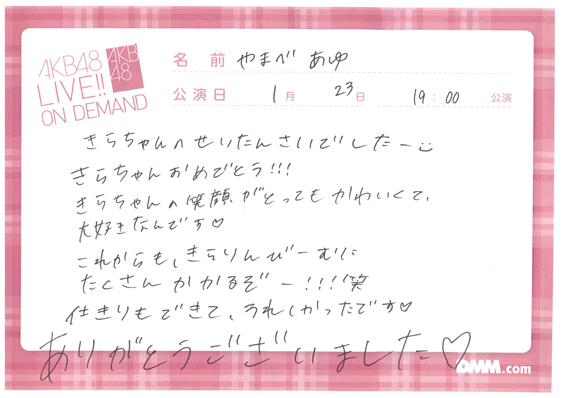 AKB48
LIVE!!
ON DEMAND
AKB
48
名 前 やまべ あゆ
公演日 1月 23日 19:00 公演
きらちゃんのせいたんさいでしたー
きらちゃんおめでとう!!!
きらちゃんの笑顔がとってもかわいくて、
大好きなんです♡
これからも、きらりんびーむに
たくさんかかるぞー!!!!笑
仕きりもできて、うれしかったです♡
ありがとうございました♡
DMM.com